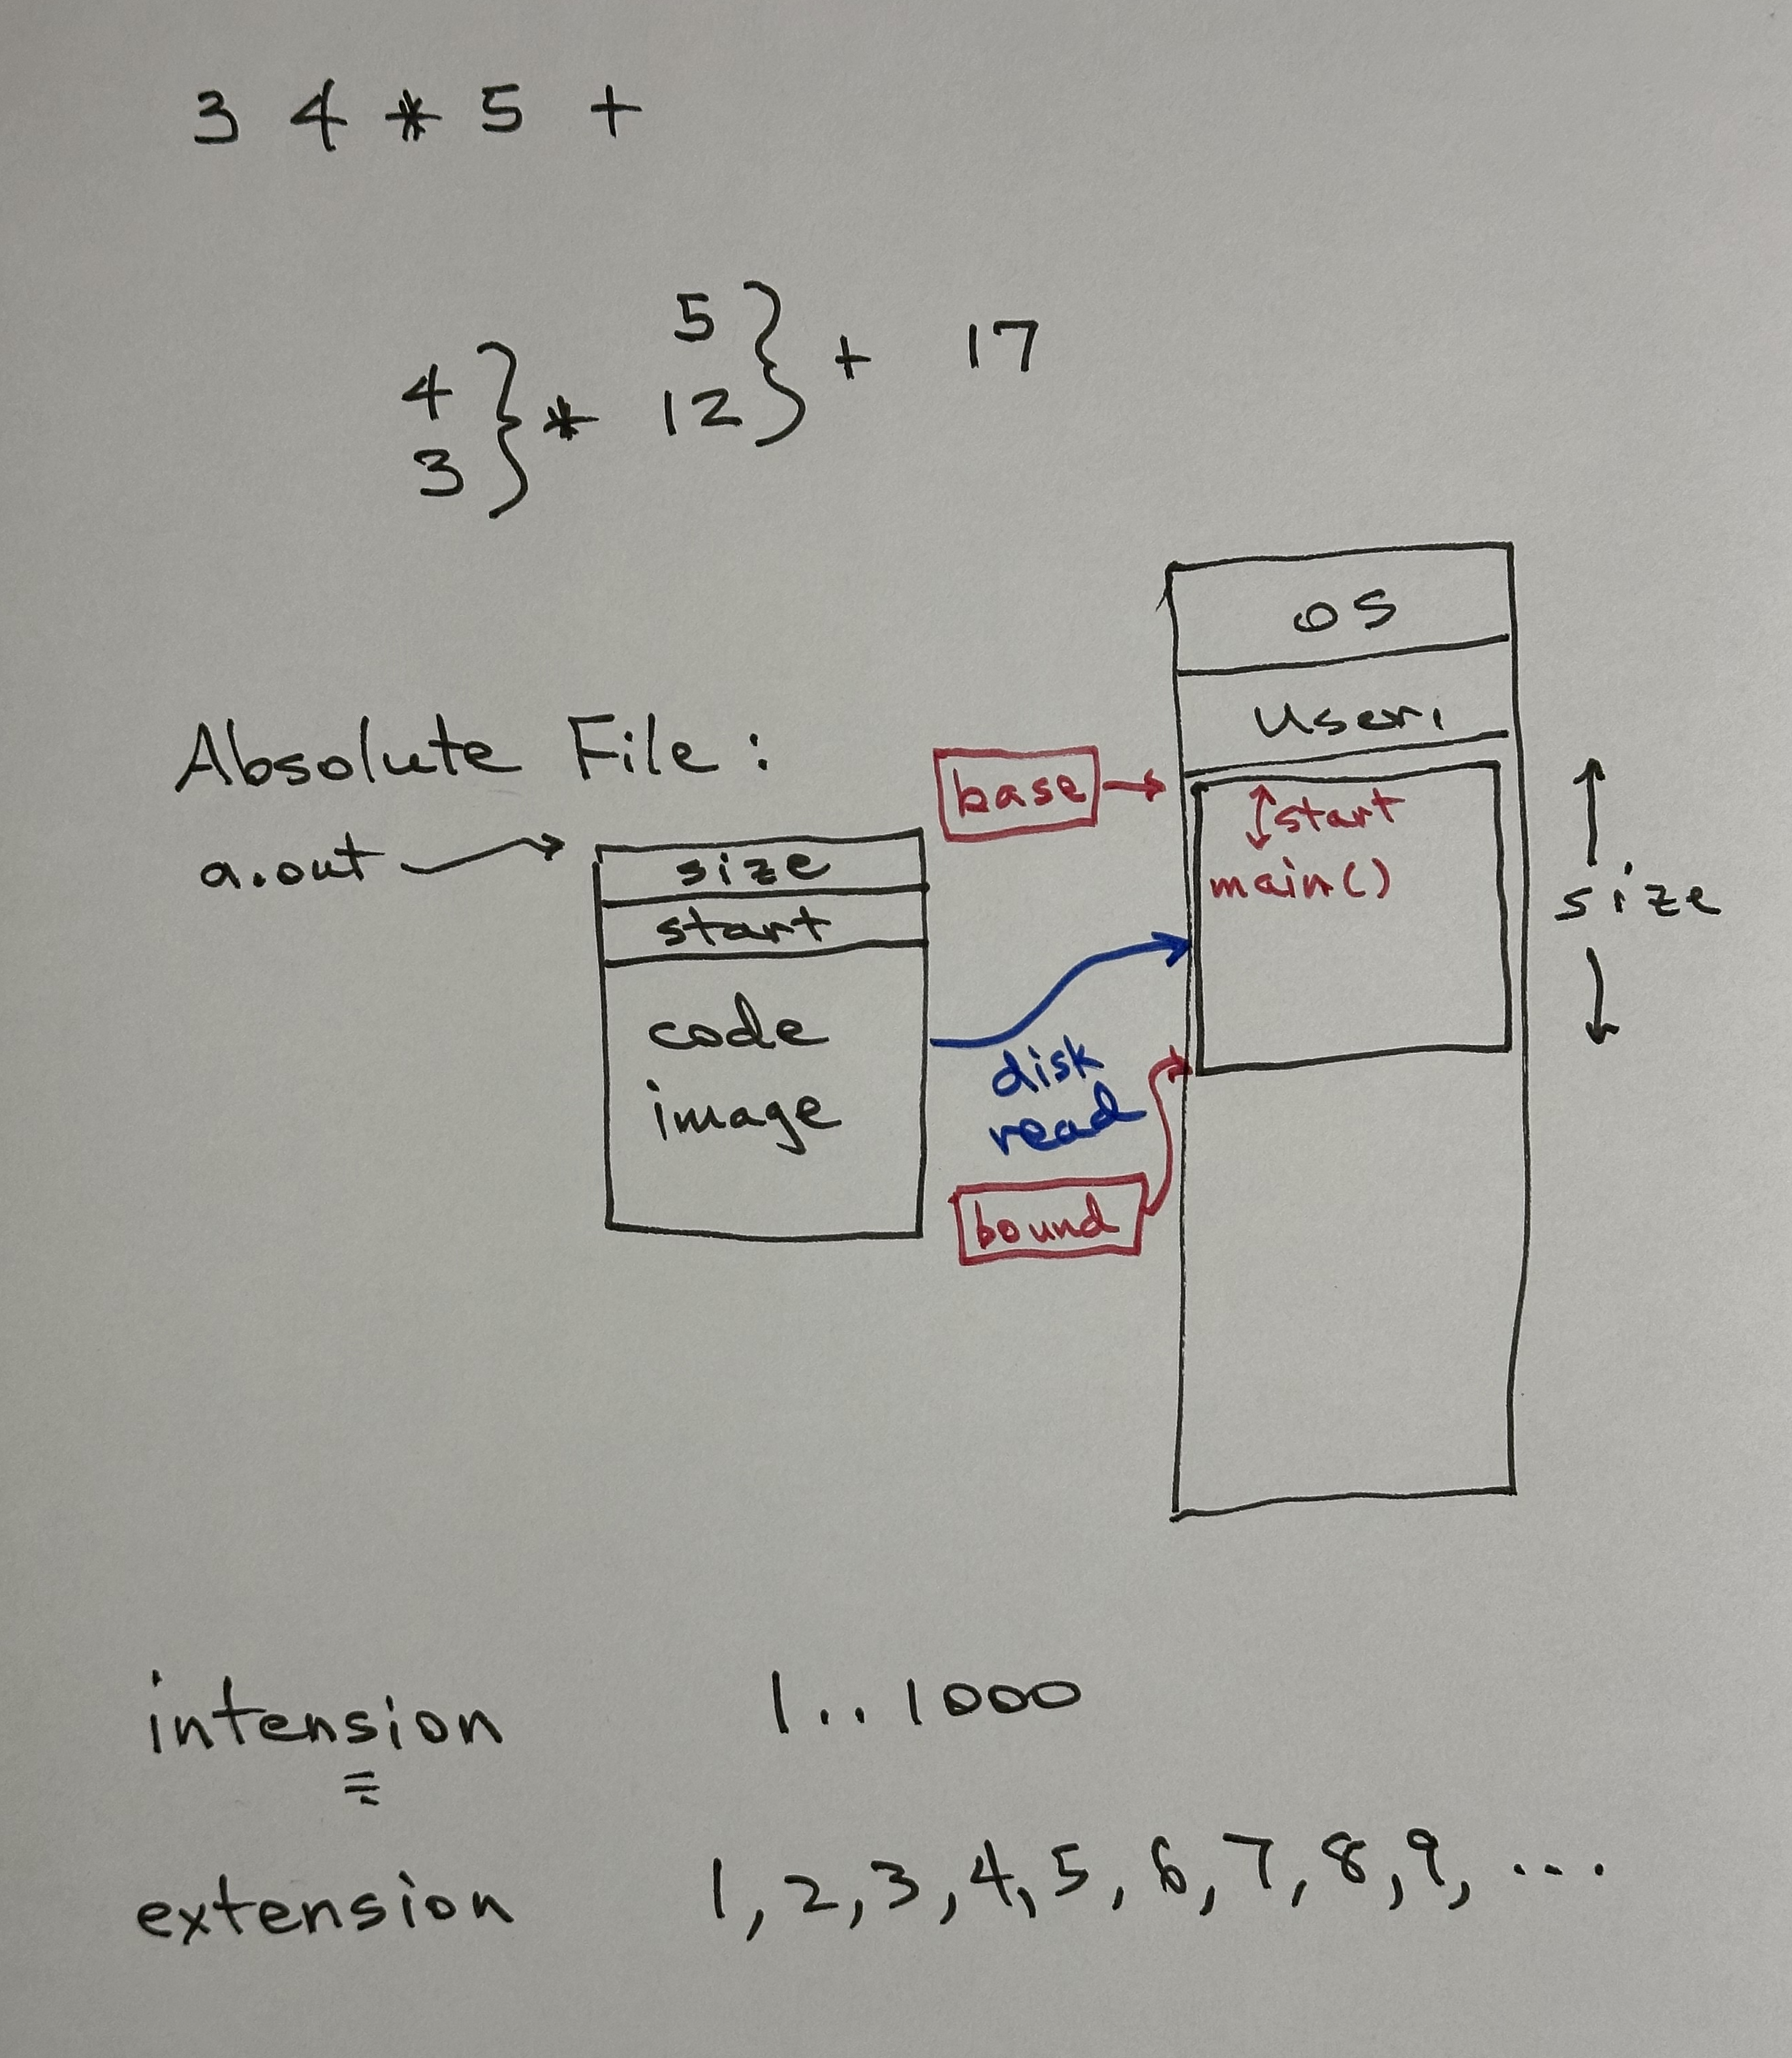 3 4 * 5 +
5
4 } * 12 } + 17
3
OS
User1
Absolute File :
base
start
a.out
size
main()
size
start
code
image
disk
read
bound
intension 1..1000
extension 1, 2, 3, 4, 5, 6, 7, 8, 9, ...